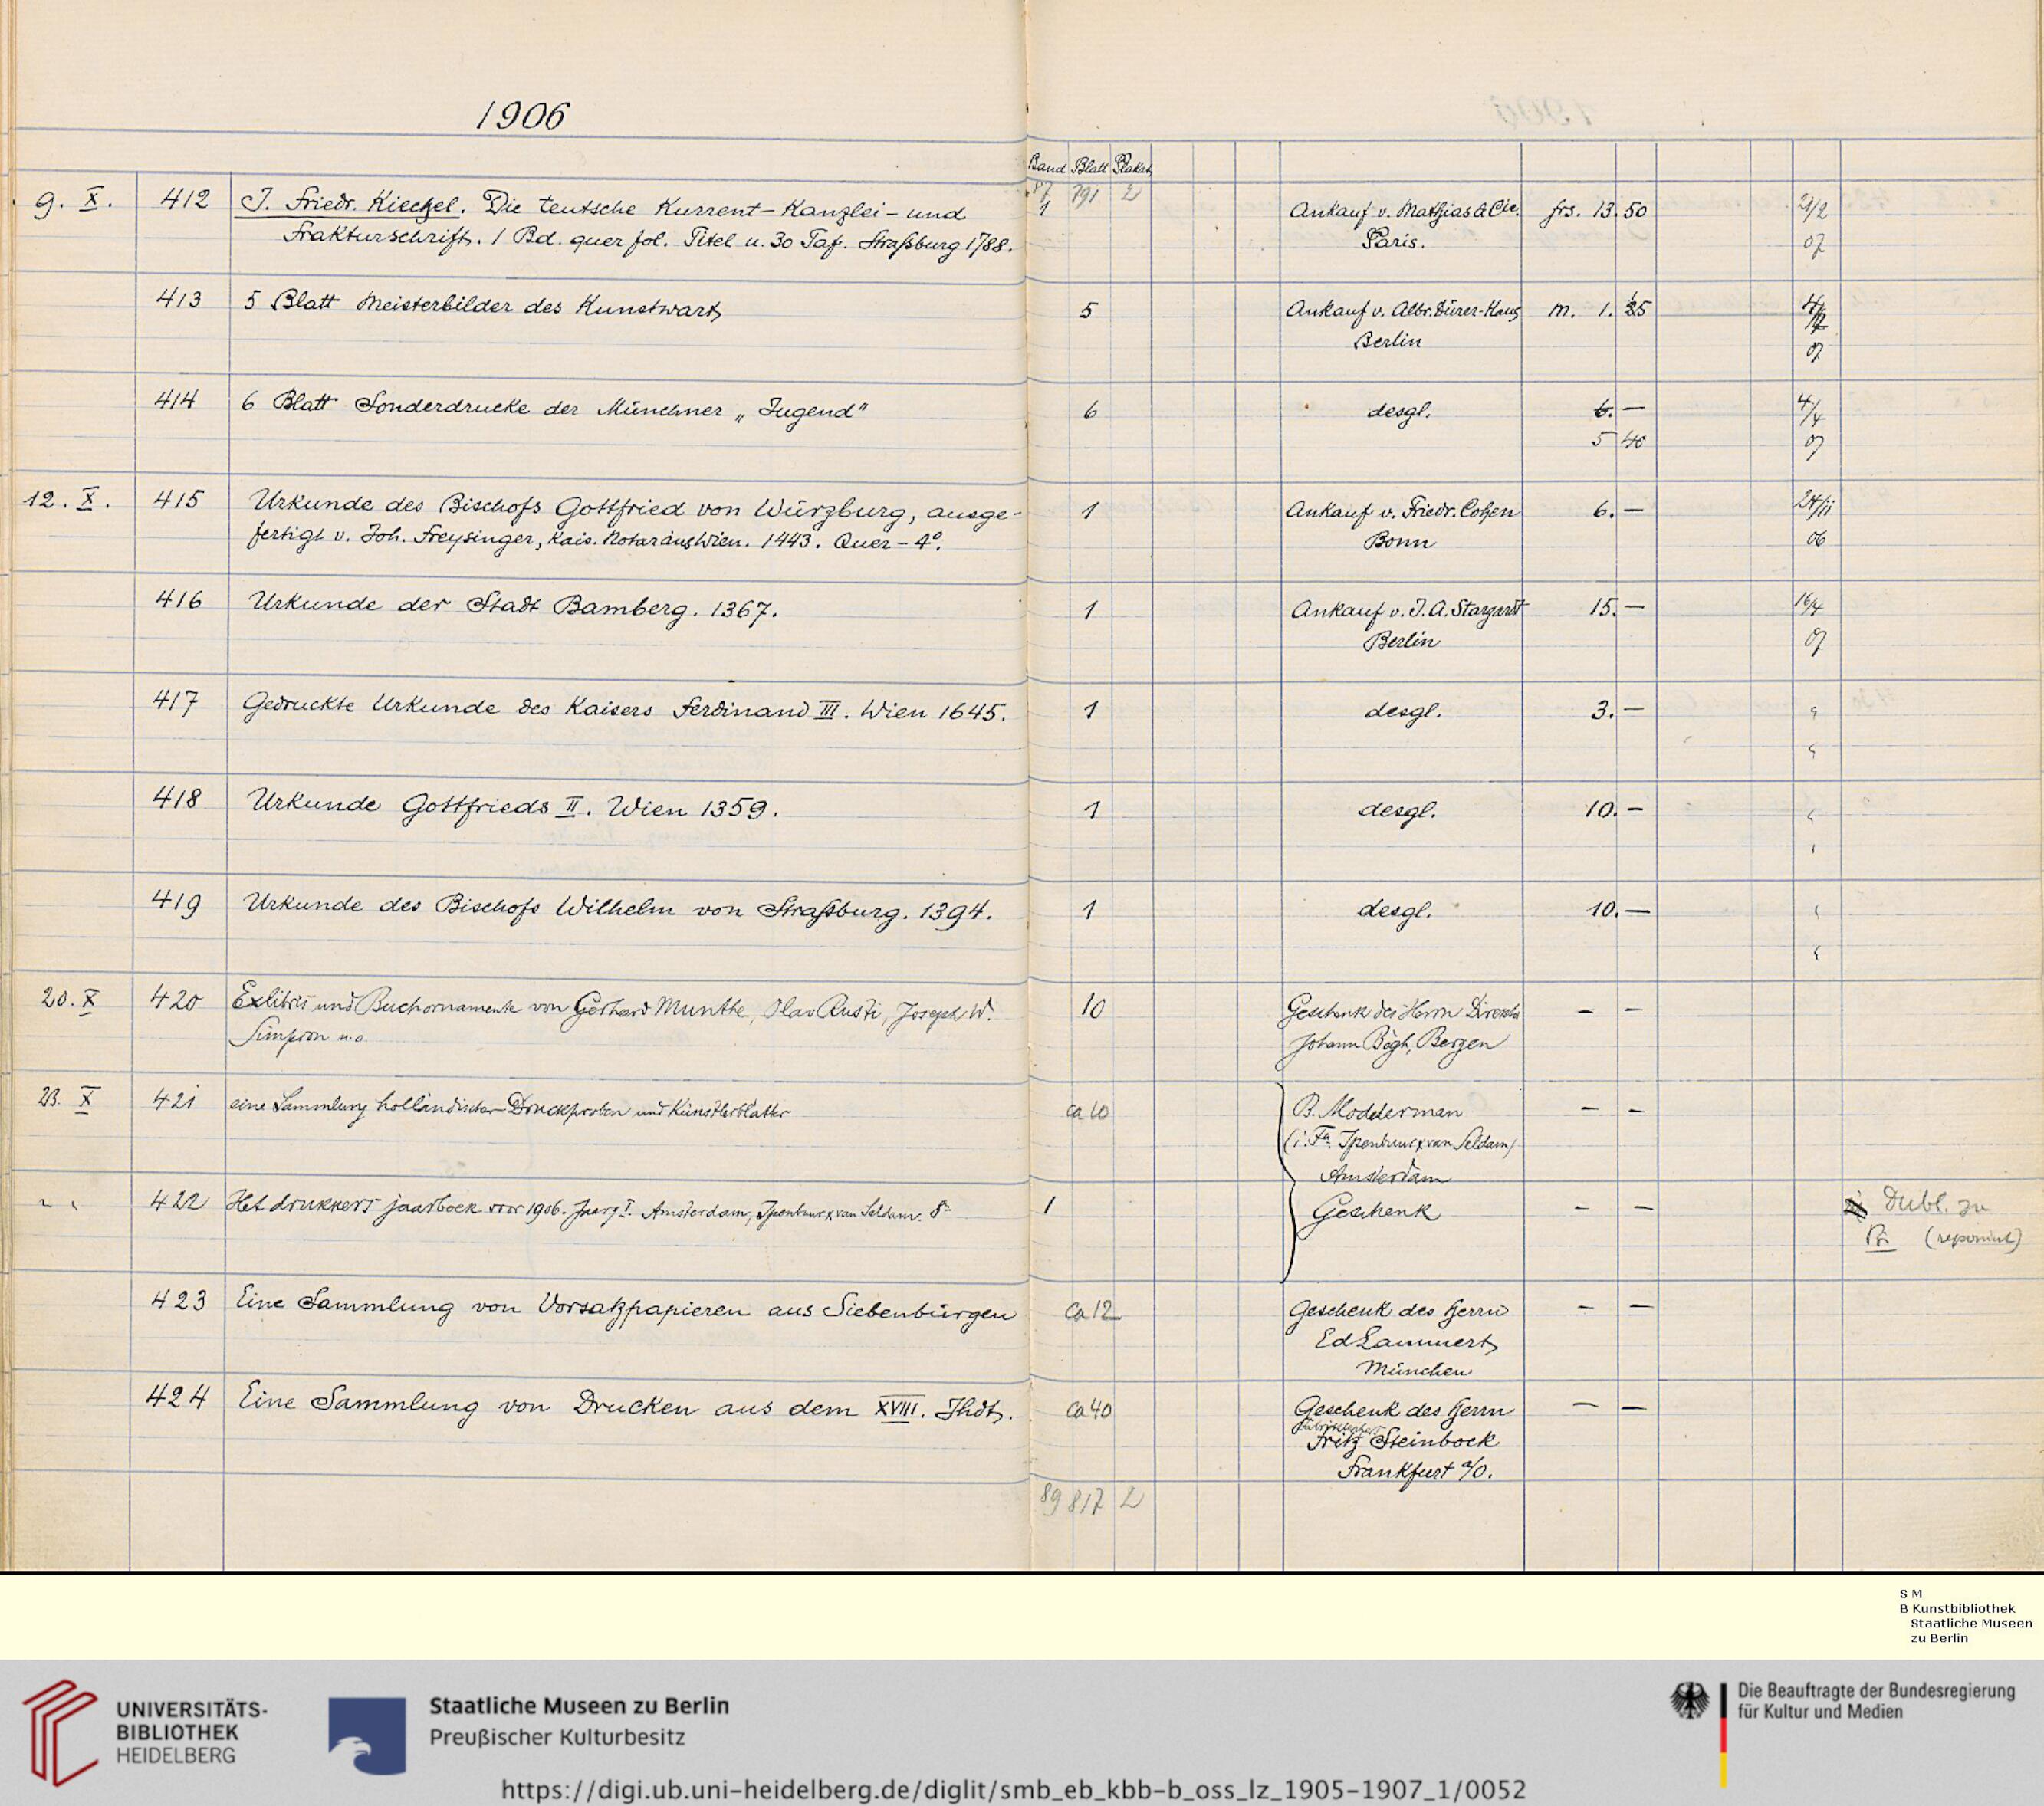 1906
Band Blatt Plakat
87 791 2
9. X. 412 J. Friedr. Kieckel. Die teutsche Kurrent-Kanzlei-und 1 Ankauf v. Mathias & Cie. frs. 13.50 21/2
Frakturschrift. 1 Bd. quer fol. Titel u. 30 Taf. Straßburg 1788. Paris. 07
413 5 Blatt Meisterbilder des Kunstwart 5 Ankauf v. Albr. Dürer-Haus m. 1.
Berlin 07
414 6 Blatt Sonderdrucke der Münchner „Jugend" 6 desgl. 6. — 4/4
5 40 07
12. X. 415 Urkunde des Bischofs Gottfried von Würzburg, ausge- 1 Ankauf v. Friedr. Cohen 6. — 24/11
fertigt v. Joh. Freysinger, Kais. Notar aus Wien. 1443. Quer-4°. Bonn 06
416 Urkunde der Stadt Bamberg. 1367. 1 Ankauf v. J. A. Stargardt 15. — 16/4
Berlin 07
417 Gedruckte Urkunde des Kaisers Ferdinand III. Wien 1645. 1 desgl. 3. —
418 Urkunde Gottfrieds II. Wien 1359. 1 desgl. 10. —
419 Urkunde des Bischofs Wilhelm von Straßburg. 1394. 1 desgl. 10. —
20. X 420 Exlibris und Buchornamente von Gerhard Munthe, Olav Rusti, Joseph W. 10 Geschenk des Herrn Direktor — —
Simpson u. a. Johann Bögh, Bergen
23. X 421 eine Sammlung holländischer Druckproben und Künstlerblätter ca 10 B. Modderman — —
(i. Fa. Ipenbuur & van Seldam)
Amsterdam
" " 422 Het drukkers jaarboek voor 1906. Jaarg I. Amsterdam, Ipenbuur & van Seldam. 8° 1 Geschenk — — Dubl. zu
(reponirt)
423 Eine Sammlung von Vorsatzpapieren aus Siebenbürgen ca 12 Geschenk des Herrn — —
Ed Lammert
München
424 Eine Sammlung von Drucken aus dem XVIII. Jhdt. ca 40 Geschenk des Herrn — —
Fritz Steinbock
Frankfurt a/O.
89 817 2
S M
B Kunstbibliothek
Staatliche Museen
zu Berlin
UNIVERSITÄTS-
BIBLIOTHEK
HEIDELBERG
Staatliche Museen zu Berlin
Preußischer Kulturbesitz
Die Beauftragte der Bundesregierung
für Kultur und Medien
https://digi.ub.uni-heidelberg.de/diglit/smb_eb_kbb-b_oss_lz_1905-1907_1/0052